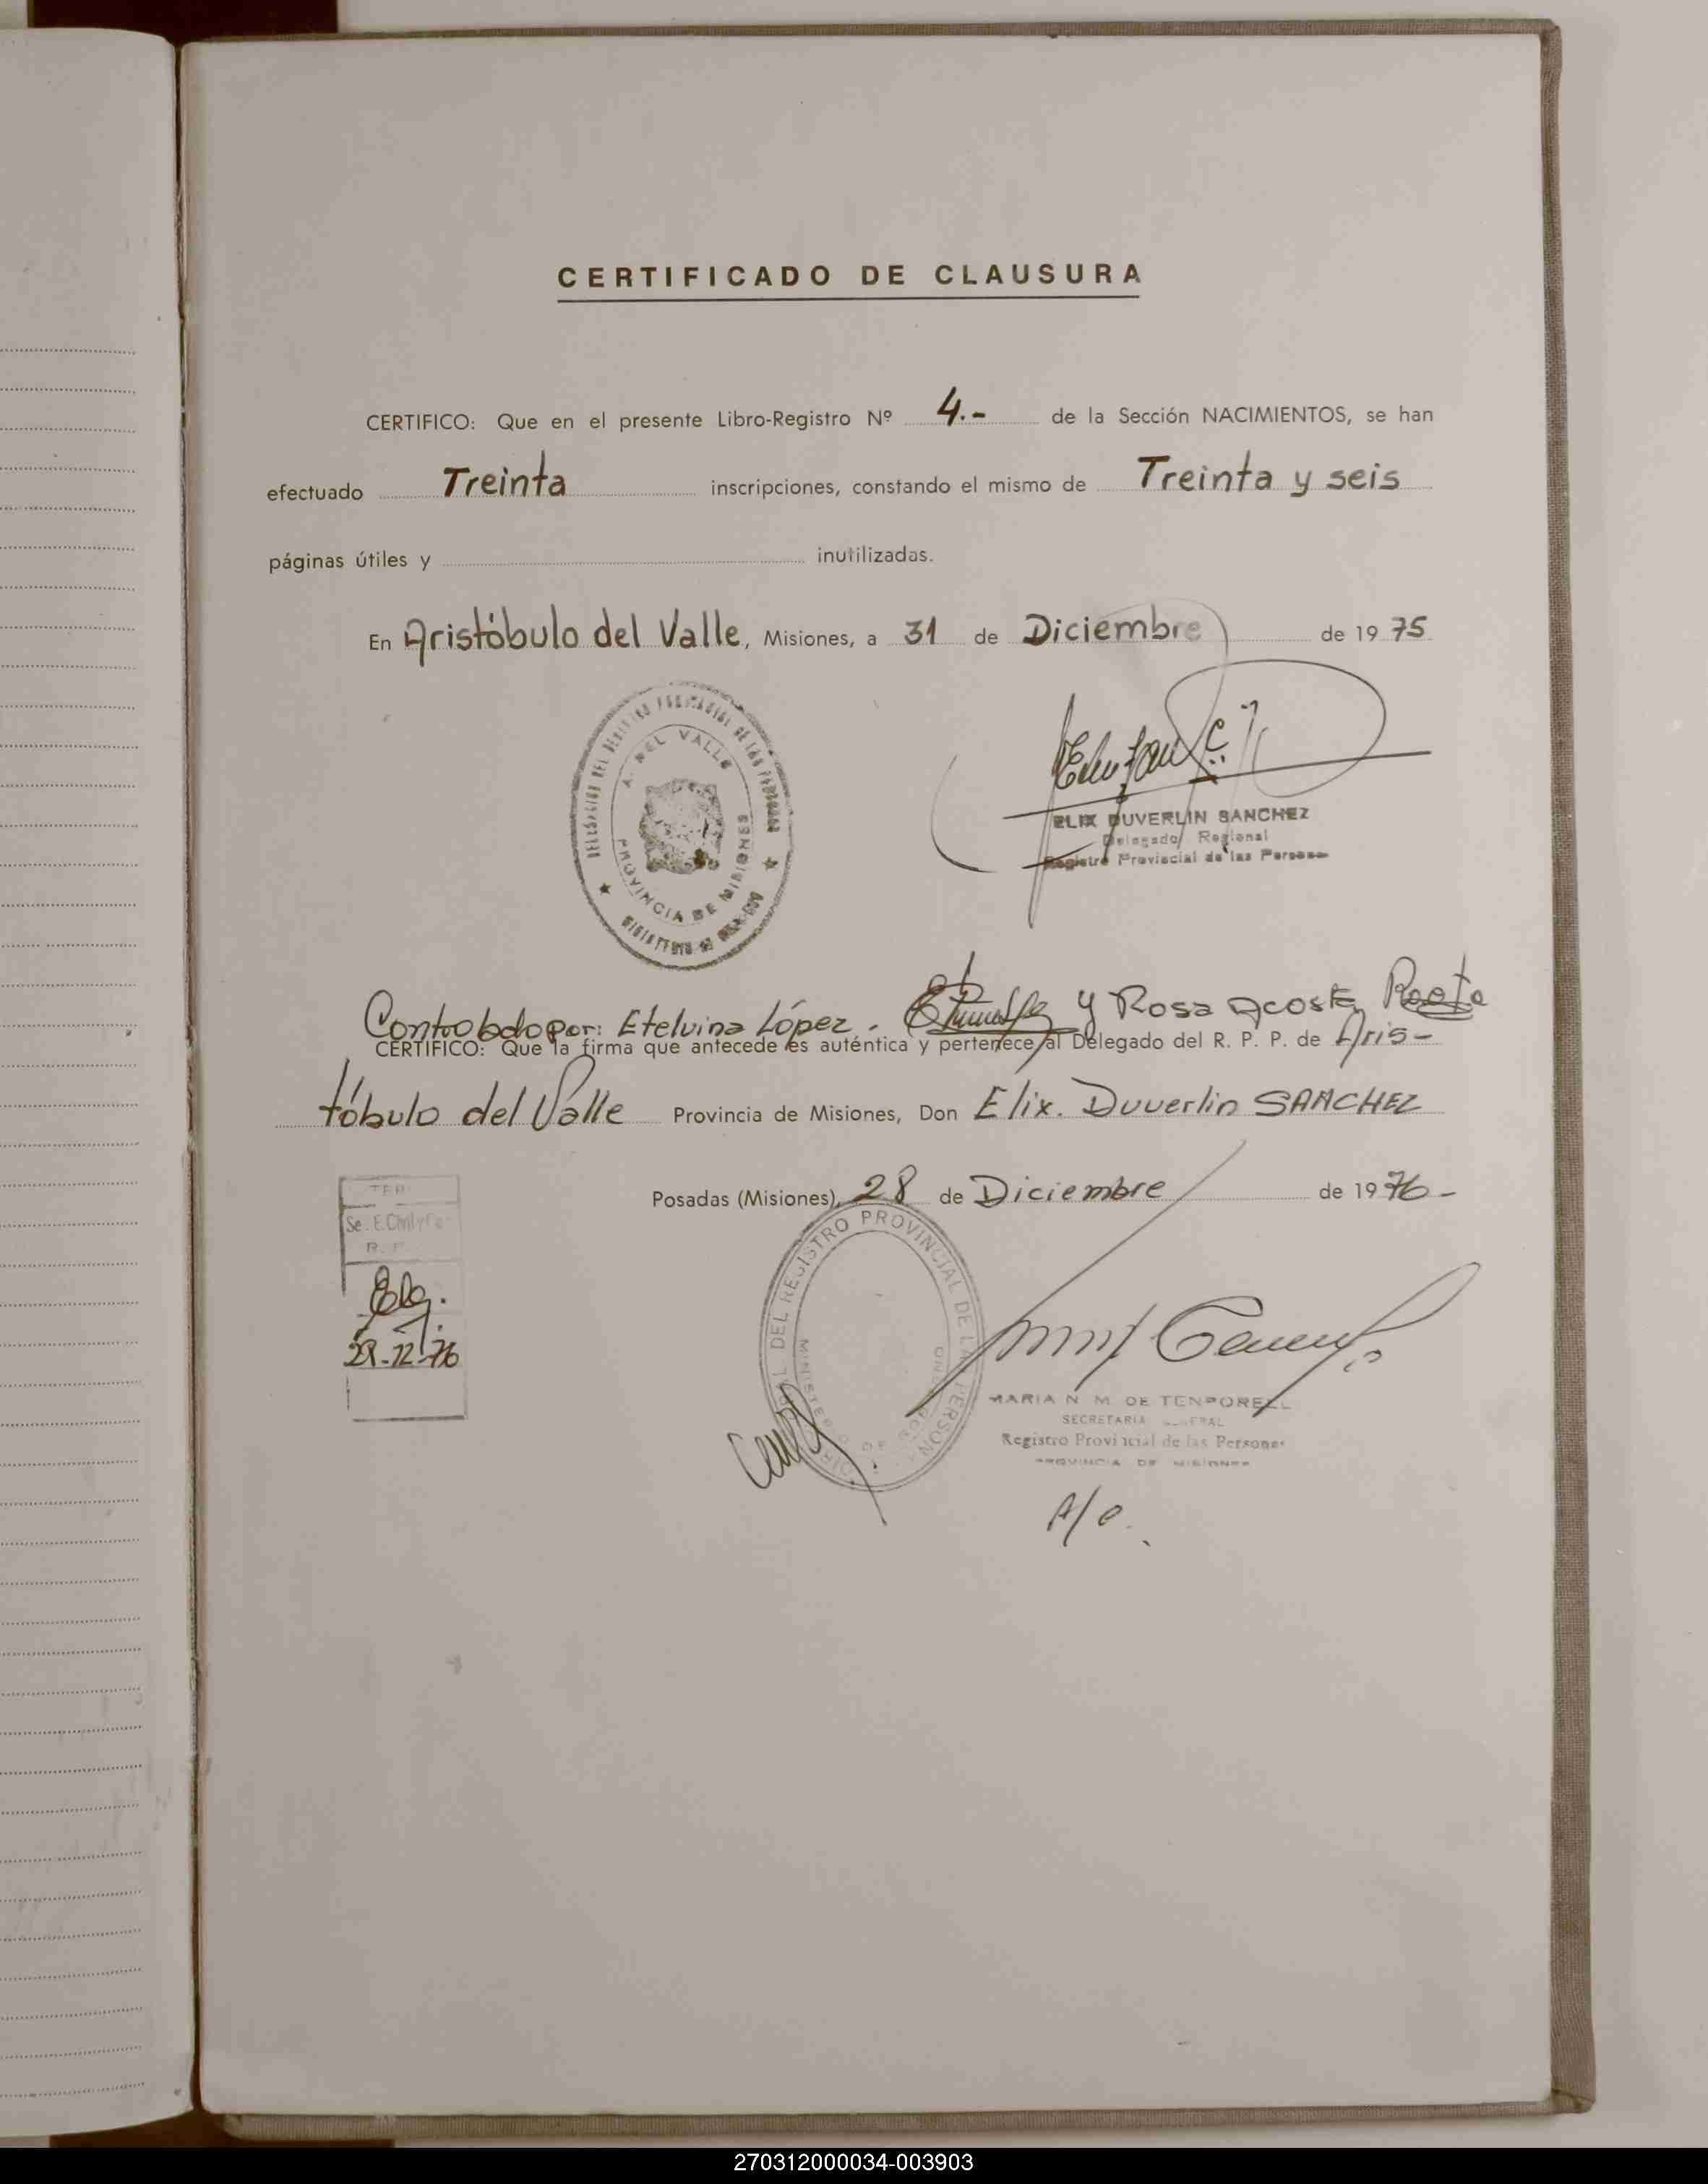 CERTIFICADO DE CLAUSURA
CERTIFICO: Que en el presente Libro-Registro Nº 4.- de la Sección NACIMIENTOS, se han
efectuado Treinta inscripciones, constando el mismo de Treinta y seis
páginas útiles y inutilizadas.
En Aristóbulo del Valle, Misiones, a 31 de Diciembre de 1975
A. DEL VALLE
PROVINCIA DE MISIONES
ELIX DUVERLIN SANCHEZ
Delegado Regional
Registro Provincial de las Personas
Controlado por: Etelvina López. y Rosa Acosta
CERTIFICO: Que la firma que antecede es auténtica y pertenece al Delegado del R. P. P. de Aris-
tóbulo del Valle Provincia de Misiones, Don Elix. Duverlin SANCHEZ
Posadas (Misiones), 28 de Diciembre de 1976-
DEL REGISTRO PROVINCIAL DE LAS PERSON
29-12-76
MARIA N. M. DE TEMPORELL
SECRETARIA GENERAL
Registro Provincial de las Personas
PROVINCIA DE MISIONES
270312000034-003903